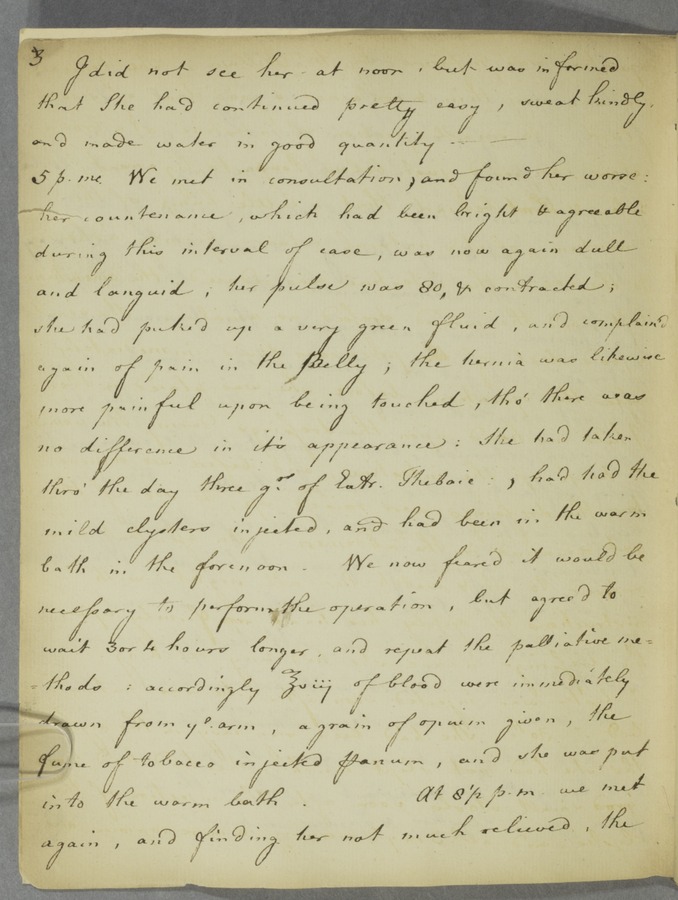 3
I did not see her at noon, but was informed
that She had continued pretty easy, sweat kindly,
and made water in good quantity —
5 p. m. We met in consultation, and found her worse:
her countenance, which had been bright & agreeable
during this interval of ease, was now again dull
and languid; her pulse was 80, & contracted;
she had puked up a very green fluid, and complain'd
again of pain in the Belly; the hernia was likewise
more painful upon being touched, tho' there was
no difference in it's appearance: She had taken
thro' the day three grs of Extr. Thebaic:, had had the
mild clysters injected, and had been in the warm
bath in the forenoon. We now fear'd it would be
necessary to perform the operation, but agree'd to
wait 3 or 4 hours longer, and repeat the palliative me=
=thods: accordingly ℥viij of blood were immediately
drawn from ye. arm, a grain of opium given, the
fume of tobacco injected ꝑ anum, and she was put
into the warm bath. At 8 p. m. we met
again, and finding her not much relieved, the